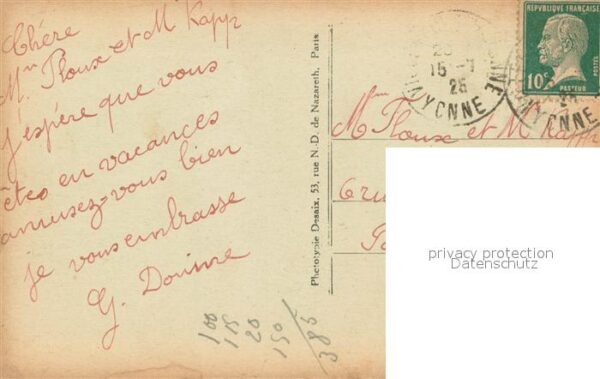 Chère
Mm Ploux et M Kapp
j'éspère que vous
êtes en vacances
amusez-vous bien
je vous embrasse
G.
100
115
20
150
385
Phototypie Desaix, 53, rue N.-D. de Nazareth, Paris
15
25
YONNE
REPUBLIQUE FRANÇAISE
10c
POSTES
PASTEUR
YONNE
Mm Ploux et M Kapp
privacy protection
Datenschutz